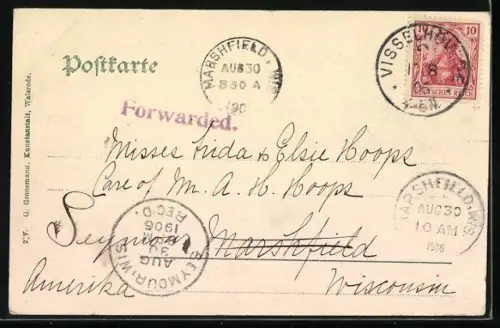 Postkarte
MARSHFIELD WIS.
AUG 30
8 30 A
190
VISSELHÖVEDE
10
DEUTSCHES REICH
Forwarded.
Misses Frida & Elsie Hoops
Care of M. A. H. Hoops
Seymour Marshfield
Wisconsin
Amerika
MARSHFIELD, WIS.
AUG 30
10 AM
1906
SEYMOUR, WIS.
AUG
30
1906
REC'D.
G. Gronemann, Kunstanstalt, Walsrode.